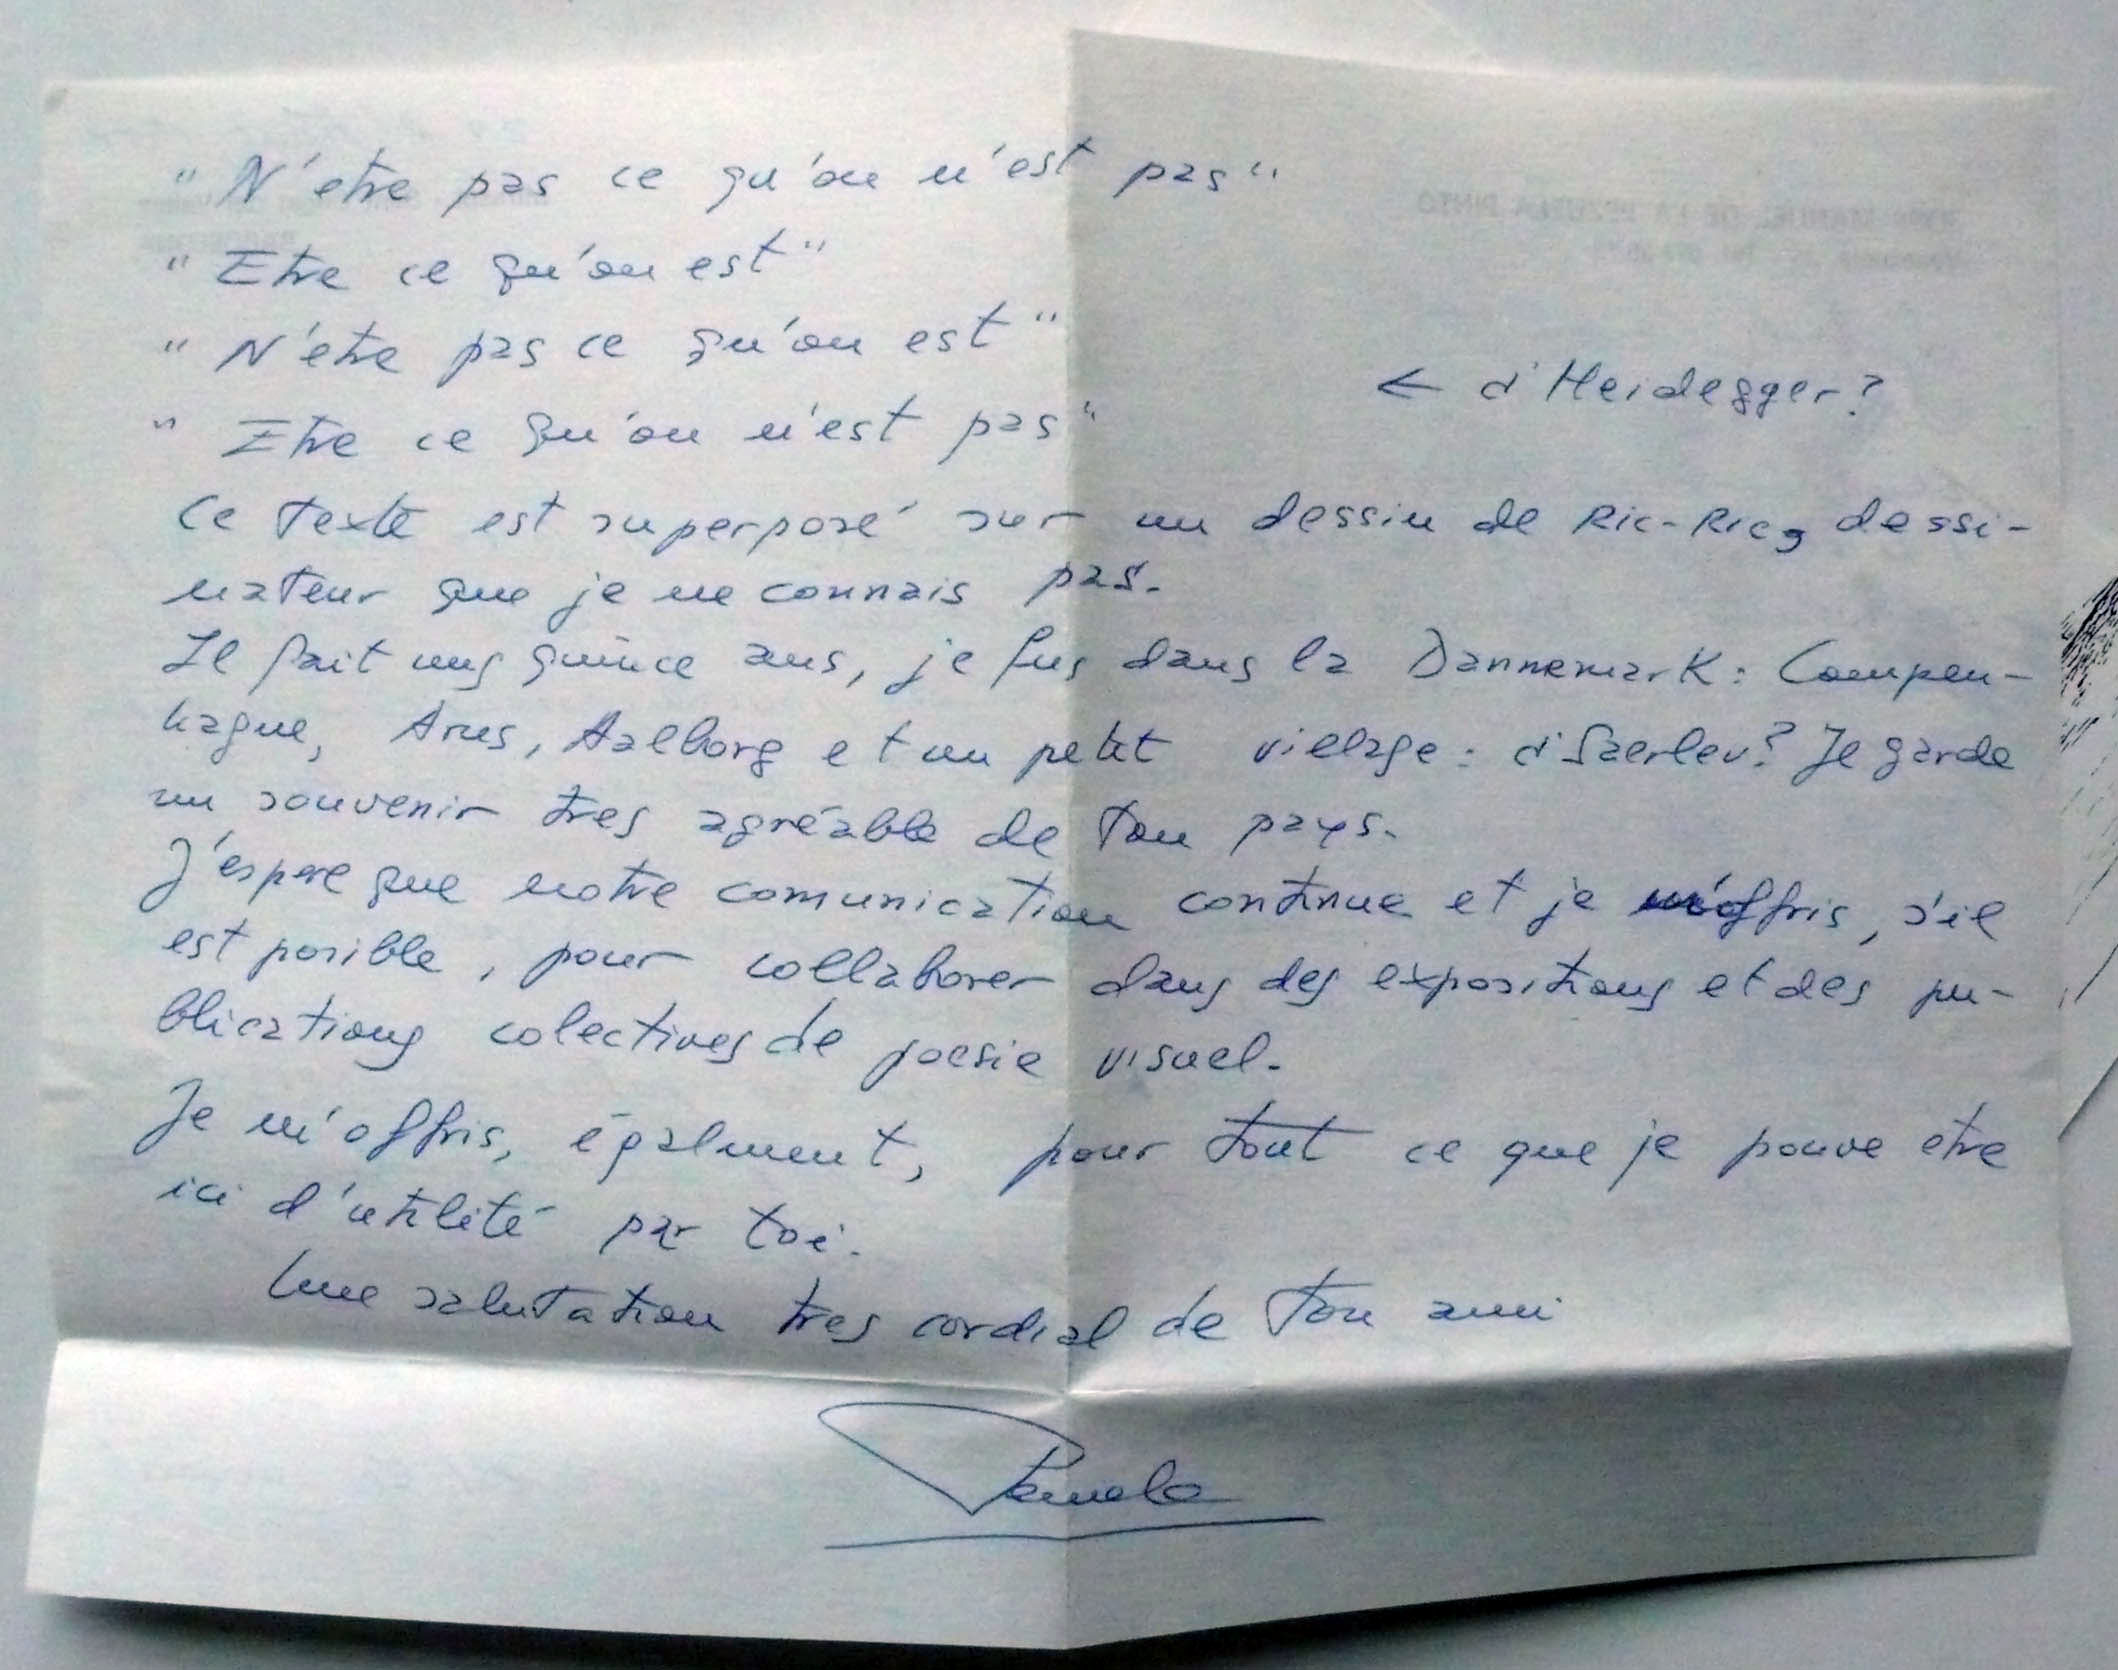 "N'etre pas ce qu'on n'est pas"
"Etre ce qu'on est"
"N'etre pas ce qu'on est"
← d'Heidegger?
"Etre ce qu'on n'est pas"
Ce texte est superposé sur un dessin de Ric-Ric, dessi-
nateur que je ne connais pas.
Il fait uns quince ans, je fus dans la Dannemark: Compen-
hague, Arus, Aalborg et un petit village: d'Saerlev? Je garde
un souvenir tres agréable de ton pays.
J'espere que notre comunication continue et je m'offris, s'il
est posible, pour collaborer dans des expositions et des pu-
blications colectives de poesie visuel.
Je m'offris, égalment, pour tout ce que je pouve etre
ici d'utilité par toi.
Une salutation tres cordial de ton ami